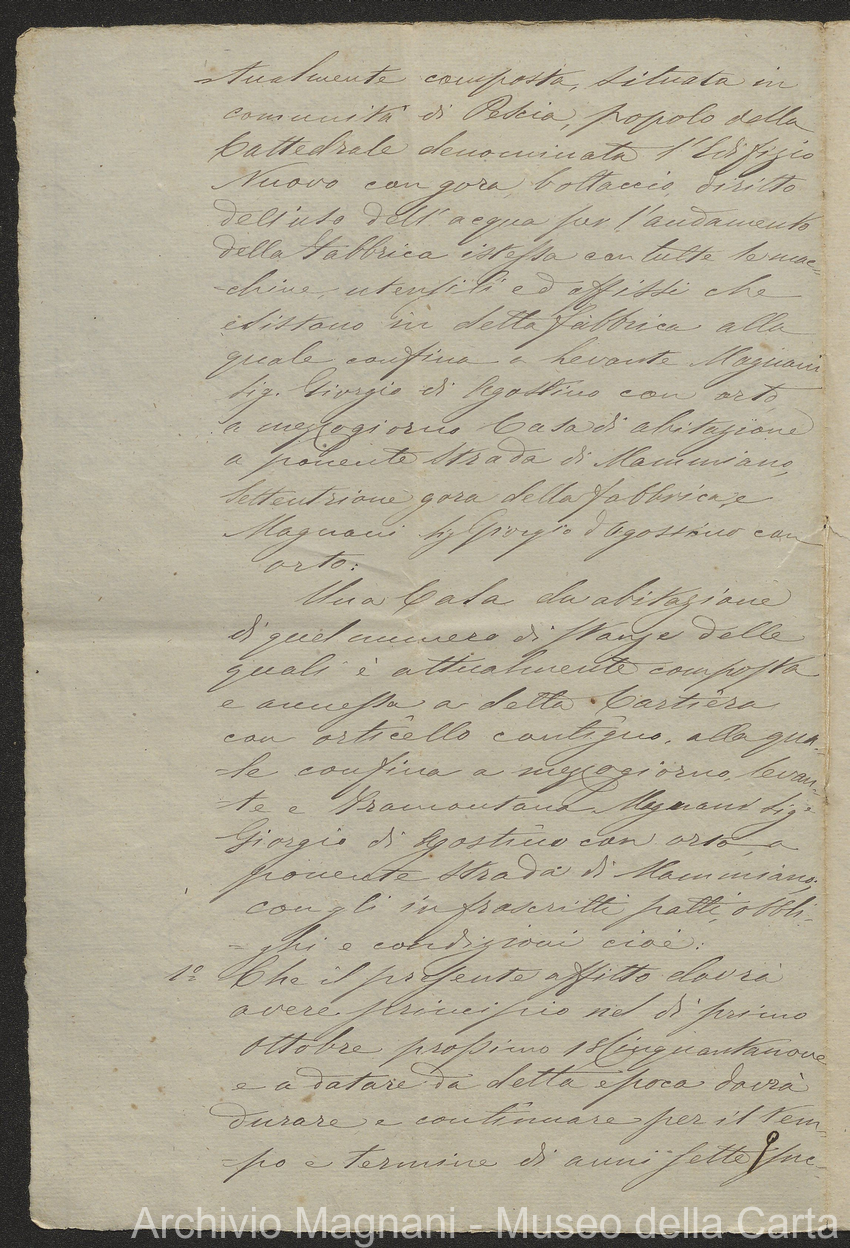 =tualmente composta, situata in
comunità di Pescia, popolo della
Cattedrale denominata l'Edifizio
Nuovo con gora, bottaccio, diritto
dell'uso dell'acqua per l'andamento
della Fabbrica istessa con tutte le mac=
=chine, utensili ed affissi che
esistono in detta fabbrica alla
quale confina a Levante Magnani
Sig. Giorgio di Agostino con orto,
a mezzogiorno Casa di abitazione
a ponente Strada di Mammiano,
Settentrione gora della fabbrica, e
Magnani Sig Giorgio d'Agostino con
orto.
Una Casa da abitazione
di quel numero di stanze delle
quali è attualmente composta
e annessa a detta Cartiera
con orticello contiguo, alla qua=
=le confina a mezzogiorno, levan=
=te e Tramontana Magnani Sig.
Giorgio di Agostino con orto, a
ponente Strada di Mammiano.
con gli infrascritti patti, obbli=
=ghi e condizioni cioè:
1º Che il presente affitto dovrà
avere principio nel dì primo
Ottobre prossimo 18Cinquantanove
e a datare da detta epoca dovrà
durare e continuare per il tem=
=po e termine di anni sette suc=
Archivio Magnani - Museo della Carta